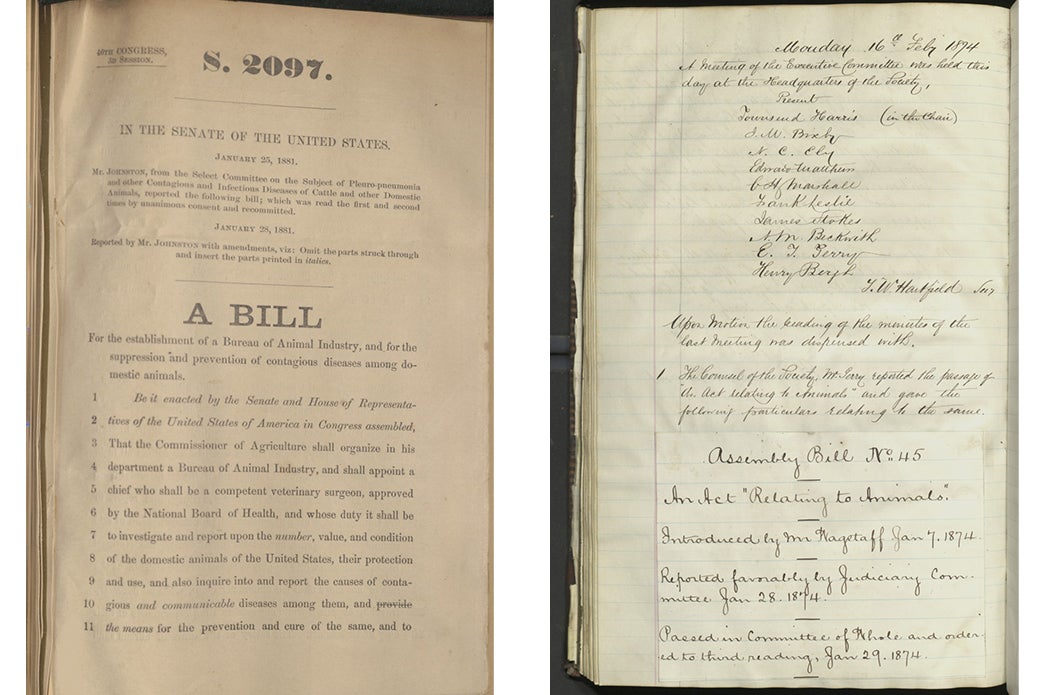 46TH CONGRESS,
3D SESSION.
S. 2097.
IN THE SENATE OF THE UNITED STATES.
JANUARY 25, 1881.
Mr. JOHNSTON, from the Select Committee on the Subject of Pleuro-pneumonia
and other Contagious and Infectious Diseases of Cattle and other Domestic
Animals, reported the following bill; which was read the first and second
times by unanimous consent and recommitted.
JANUARY 28, 1881.
Reported by Mr. JOHNSTON with amendments, viz: Omit the parts struck through
and insert the parts printed in italics.
A BILL
For the establishment of a Bureau of Animal Industry, and for the
suppression and prevention of contagious diseases among do-
mestic animals.
1 Be it enacted by the Senate and House of Representa-
2 tives of the United States of America in Congress assembled,
3 That the Commissioner of Agriculture shall organize in his
4 department a Bureau of Animal Industry, and shall appoint a
5 chief who shall be a competent veterinary surgeon, approved
6 by the National Board of Health, and whose duty it shall be
7 to investigate and report upon the number, value, and condition
8 of the domestic animals of the United States, their protection
9 and use, and also inquire into and report the causes of conta-
10 gious and communicable diseases among them, and provide
11 the means for the prevention and cure of the same, and to
Monday 16th Feby 1874
A Meeting of the Executive Committee was held this
day at the Headquarters of the Society,
Present
Townsend Harris (in the Chair)
J. M. Bixby
N. C. Ely
Edward Matthews
C H Marshall
Frank Leslie
James Stokes
N. M. Beckwith
E. T. Gerry
Henry Bergh
T. W. Hartfield Secy
Upon Motion the reading of the minutes of the
last meeting was dispensed with.
1 The Counsel of the Society, Mr. Gerry reported the passage of
"An Act relating to Animals" and gave the
following particulars relating to the same.
Assembly Bill No. 45
An Act "Relating to Animals".
Introduced by Mr Wagstaff Jan 7. 1874.
Reported favorably by Judiciary Com-
mittee Jan 28. 1874
Passed in Committee of Whole and order-
ed to third reading, Jan 29. 1874.